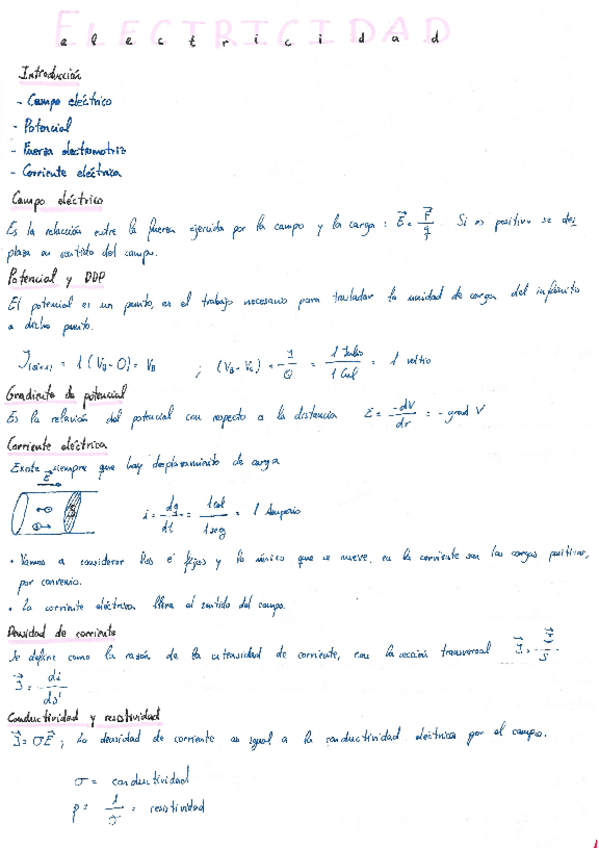 ELECTRICIDAD
electricidad
Introducción
- Campo eléctrico
- Potencial
- Fuerza electromotriz
- Corriente eléctrica
Campo eléctrico
Es la relación entre la fuerza ejercida por la campo y la carga : E⃗ = F⃗/q Si es positivo se des
plaza en sentido del campo.
Potencial y DDP
El potencial es un punto, es el trabajo necesario para trasladar la unidad de carga del infinito
a dicho punto.
= 1 (VB - 0) = VB ; = 1 Julio / 1 Cul = 1 voltio
Gradiente de potencial
Es la relación del potencial con respecto a la distancia E = -dV/dr = - grad V
Corriente eléctrica
Existe siempre que hay desplazamiento de carga
E⃗
i = dq/dt = 1 Cul/1 seg = 1 Amperio
• Vamos a considerar los e⁻ fijos y lo único que se mueve en la corriente son las cargas positivas,
por convenio.
• La corriente eléctrica lleva el sentido del campo.
Densidad de corriente
Se define como la razón de la intensidad de corriente, con la sección transversal
J⃗ = di/ds'
Conductividad y resistividad
J⃗ = σE⃗ ; La densidad de corriente es igual a la conductividad eléctrica por el campo.
σ = conductividad
ρ = 1/σ = resistividad